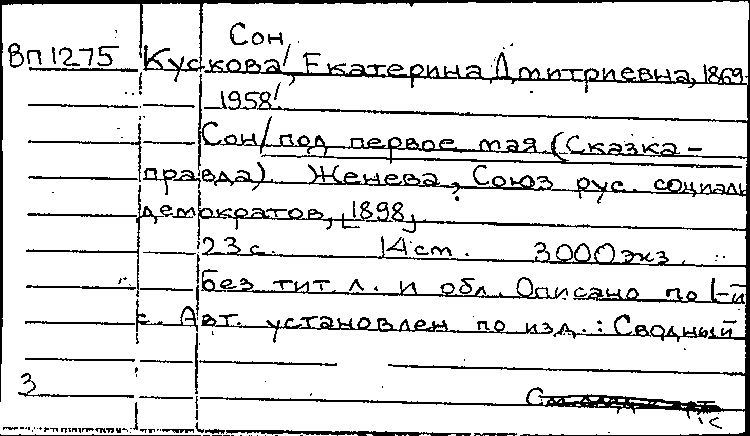 Сон
ВП1275 Кускова, Екатерина Дмитриевна, 1869-
1958
Сон/под первое мая (Сказка-
правда). Женева, Союз рус. социаль
демократов, [1898]
23 с. 14 ст. 3000 экз.
Без тит. л. и обл. Описано по 1-й
с. Авт. установлен по изд.: Сводный
3